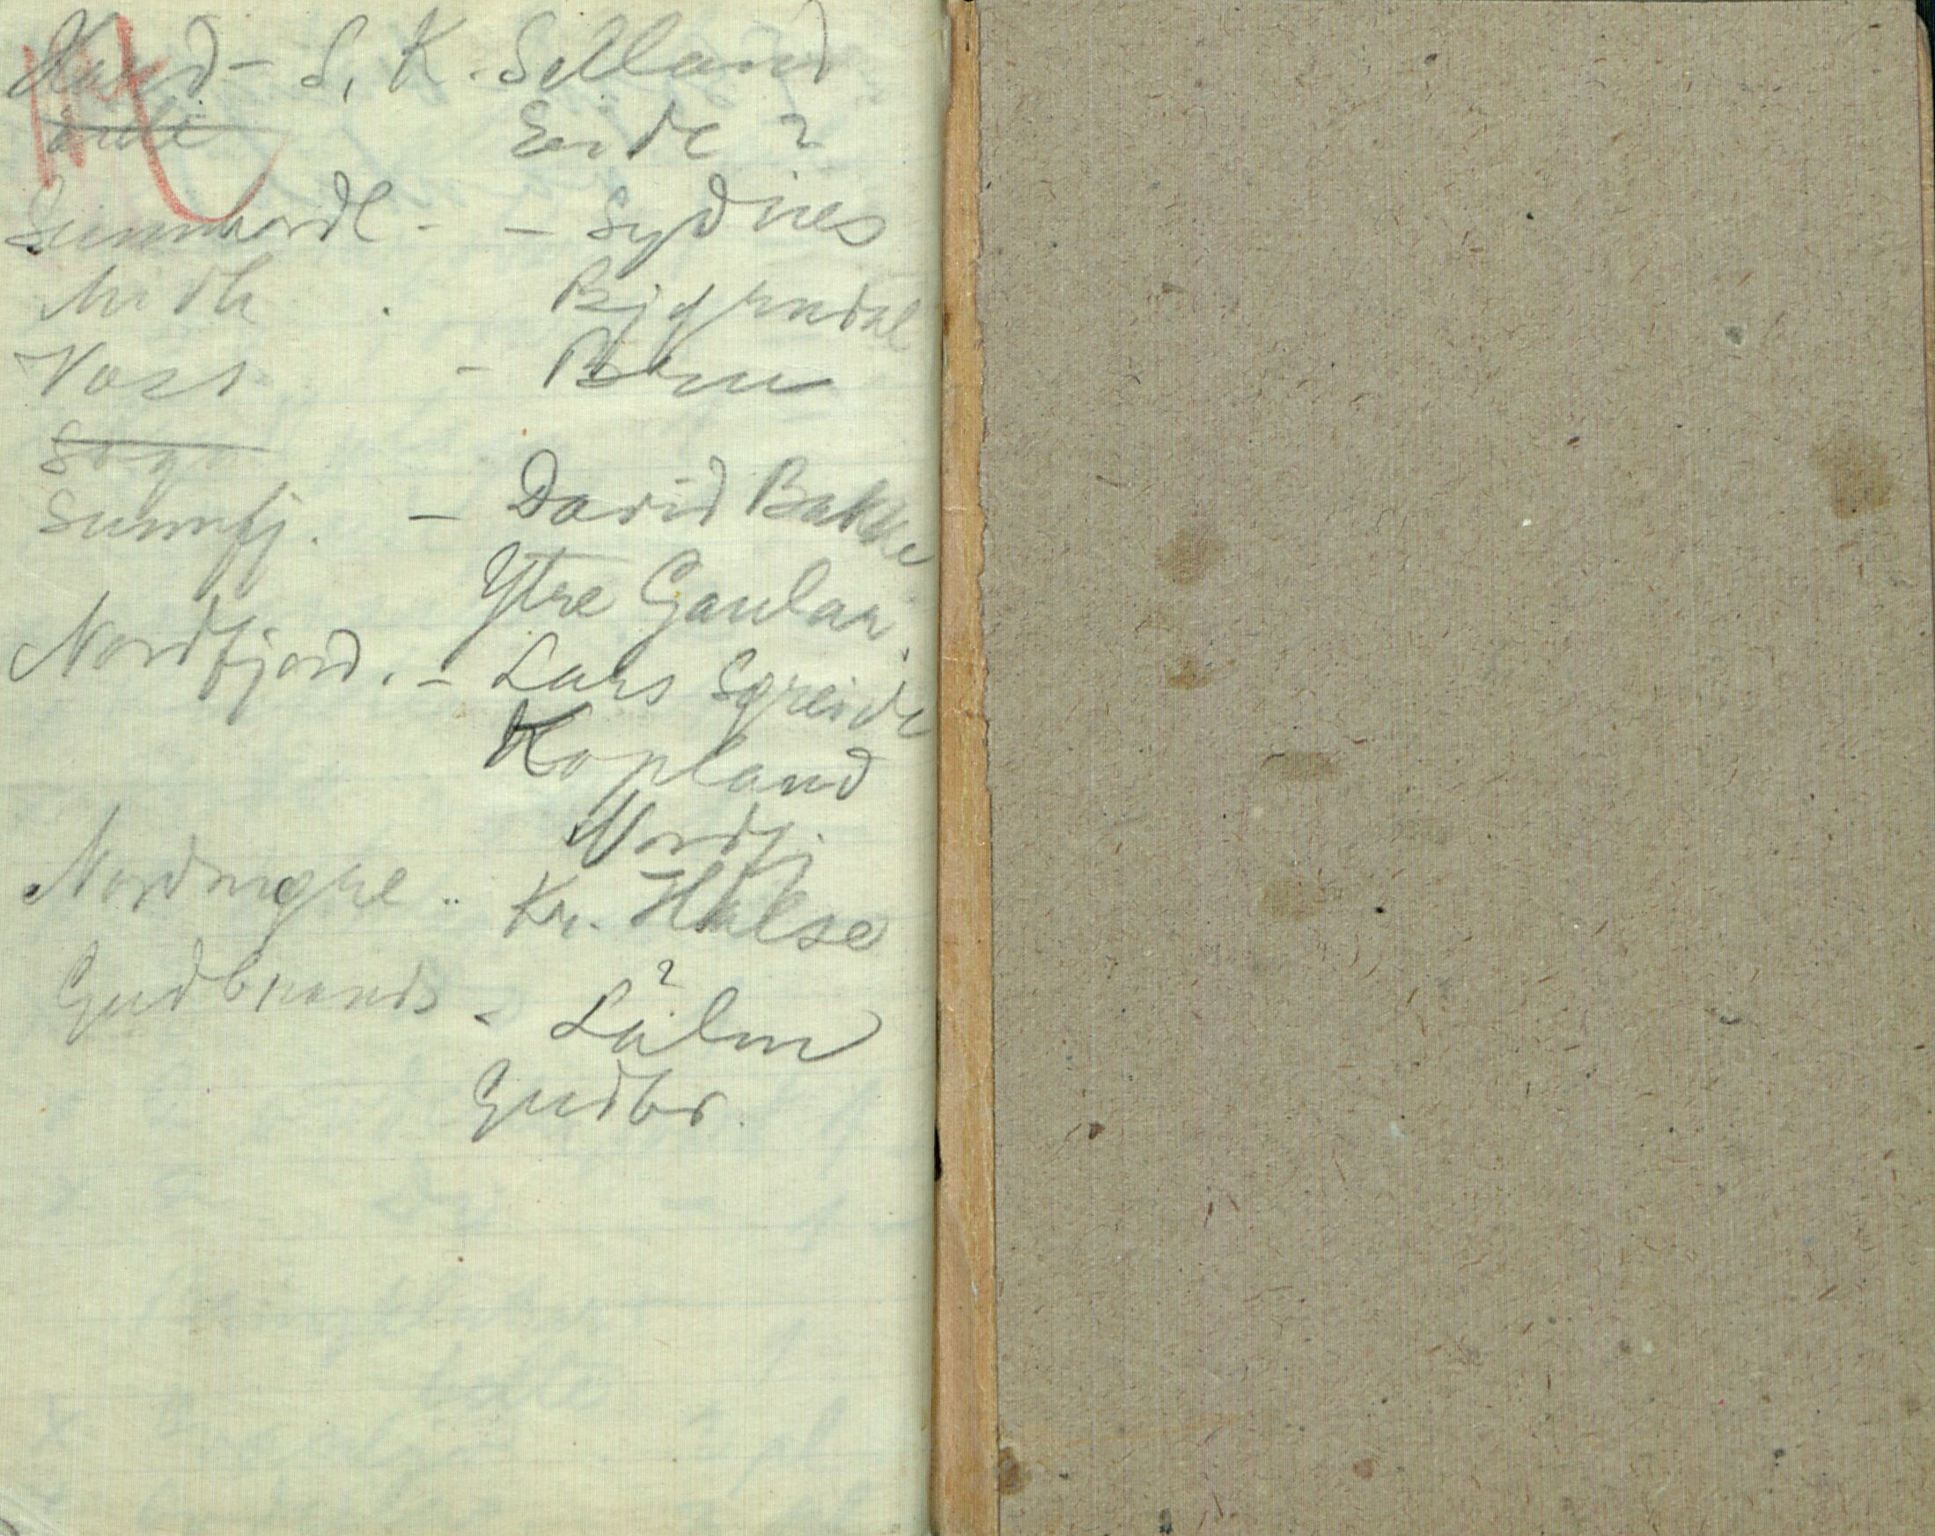 Hard - S. K. Selland
Eide ?
Sunnhordl - - Sydnes
Midh . Bjørndal
Voss -
Sogn
Sunnfj. - David Bakke
Ytre Gaular.
Nordfjord. - Lars Sgreide
Hopland
Nordfj.
Nordmøre .. Kr. Halse
Gudbrands - Lalm
?
Gudbr.